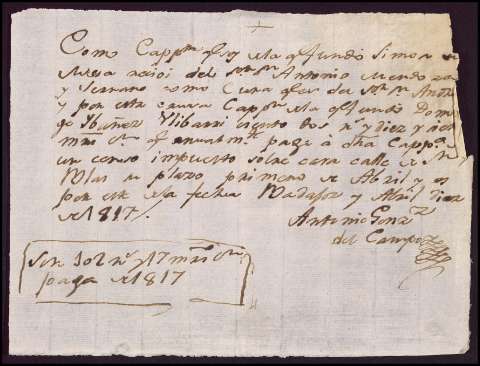 Como Cappn q soy de la q fundó Simon de
Mesa reciví del Sor Dn Antonio Mendoza
y Serrano como Cura de Sn Andres
y por esta causa Cappn de la q fundó Domin
go Ybañez Ylibarri ciento dos rs y diez y siete
mrs vn q anualmte paga á dha Cappa
un censo impuesto sobre casa calle de Sn
Blas su plazo primero de Abril y es
por este de la fecha Madaso y Abril diez
de 1817.
Antonio Gonz
del Campo
Son 102 rs y 17 mrs vn
paga de 1817